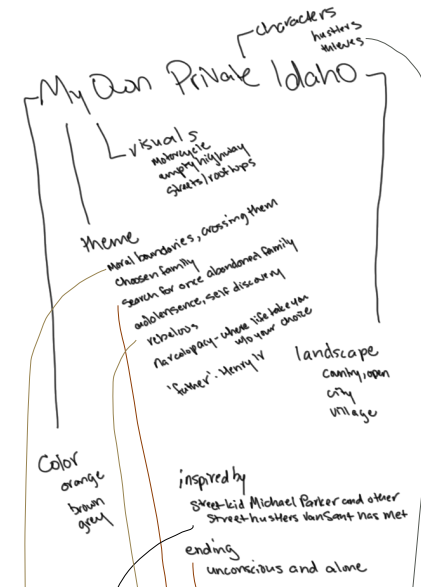 characters
hustlers
thieves
My Own Private Idaho
visuals
Motorcycle
empty highway
streets/rooftops
theme
Moral boundaries, crossing them
choosen family
search for once abandoned family
adolensence, self discovery
rebelous
narcolopacy - where life take you
w/o your choice
'father' - Henry IV
landscape
country, open
city
village
Color
orange
brown
grey
inspired by
street kid Michael Parker and other
street hustlers VanSant has met
ending
unconscious and alone